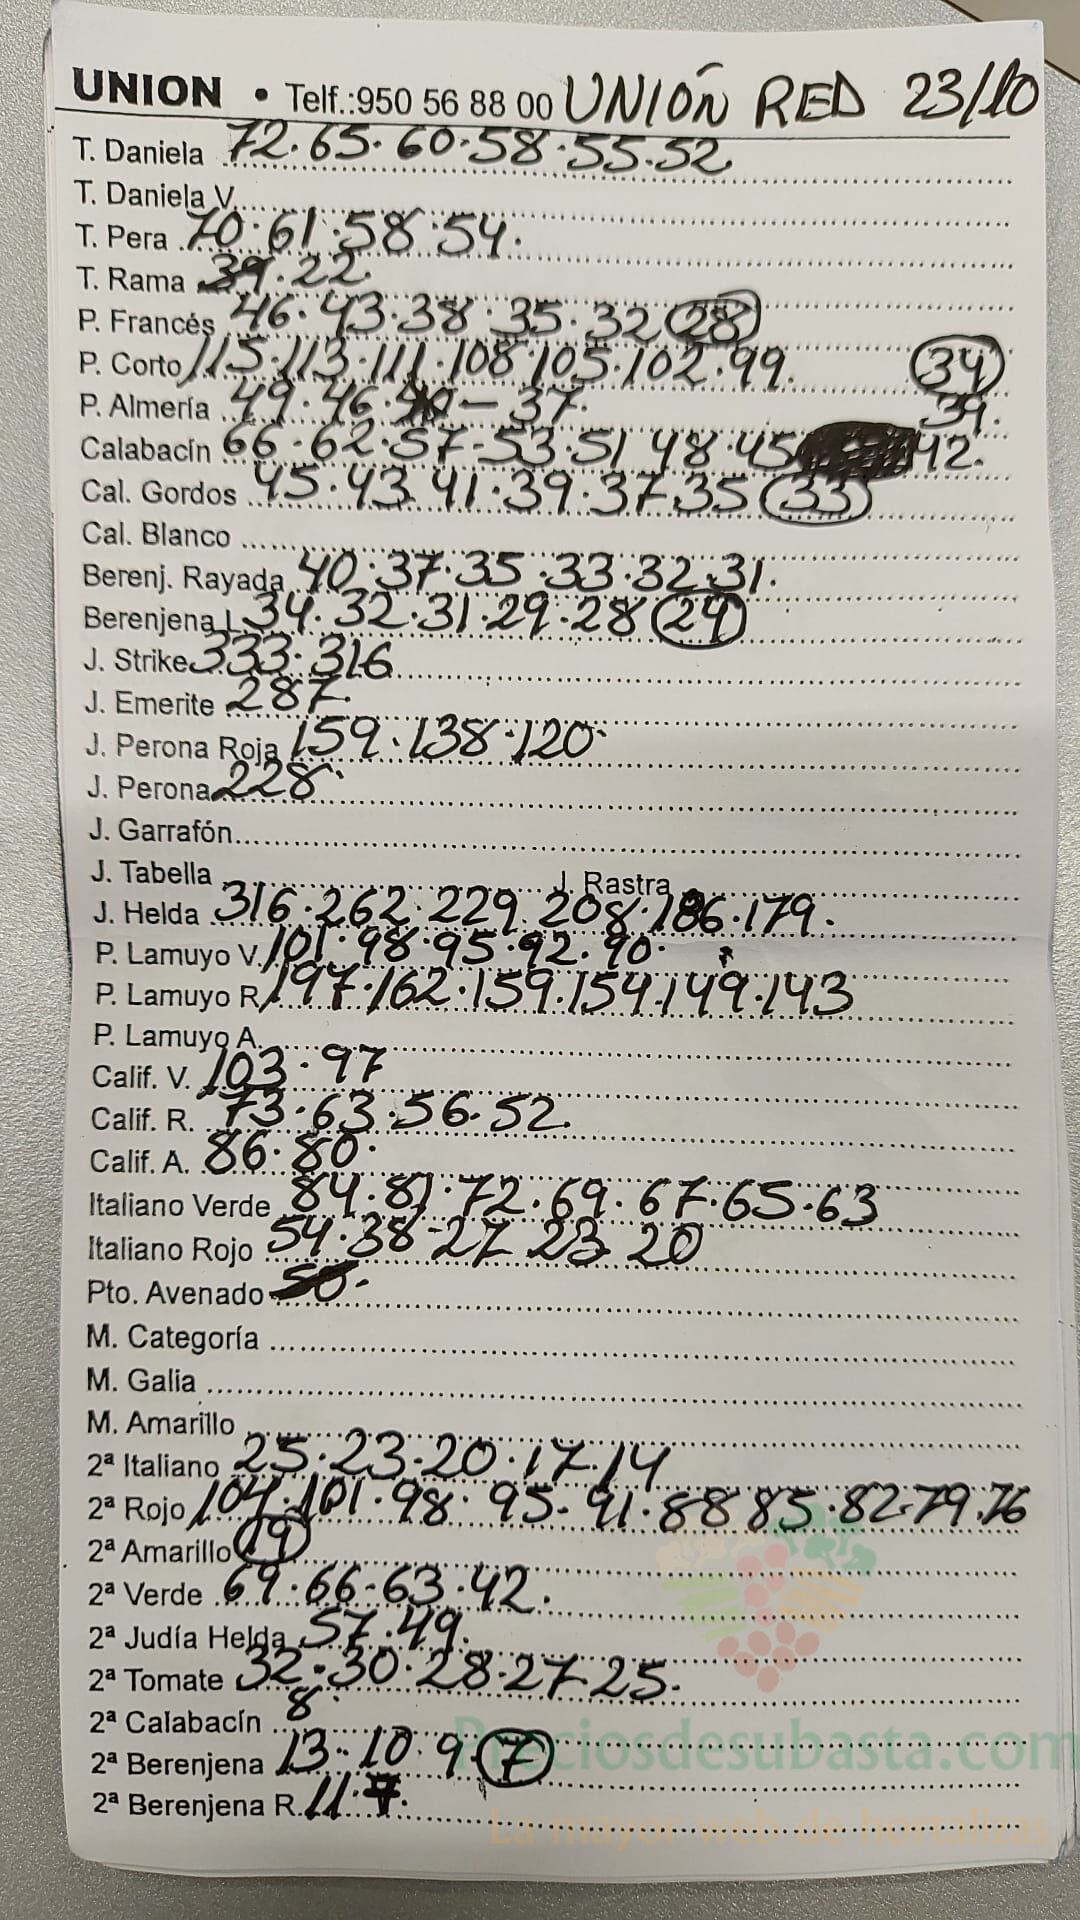 UNION • Telf.:950 56 88 00 UNIÓN RED 23/10
T. Daniela 72.65.60.58.55.52.
T. Daniela V.
T. Pera 70.61.58.54.
T. Rama 39.22.
P. Francés 46.43.38.35.32 28
P. Corto 115.113.111.108.105.102.99. 34
P. Almería 49.46.40-37. 39.
Calabacín 66.62.57-53.51 48.45 42.
Cal. Gordos 45.43.41.39.37.35 33
Cal. Blanco
Berenj. Rayada 40.37.35.33.32.31.
Berenjena L 34.32.31.29.28 24
J. Strike 333.316
J. Emerite 287.
J. Perona Roja 159.138.120.
J. Perona 228.
J. Garrafón
J. Tabella J. Rastra
J. Helda 316.262.229.208.186.179.
P. Lamuyo V. 101.98.95.92.90.
P. Lamuyo R. 197.162.159.154.149.143
P. Lamuyo A.
Calif. V. 103.97
Calif. R. 73.63.56.52.
Calif. A. 86.80.
Italiano Verde 84.81.72.69.67.65.63
Italiano Rojo 54.38-27 23 20
Pto. Avenado 50.
M. Categoría
M. Galia
M. Amarillo
2ª Italiano 25.23.20.17.14
2ª Rojo 104.101.98.95-91.88 85.82.79.76
2ª Amarillo 19
2ª Verde 69.66-63.42.
2ª Judía Helda 57.49.
2ª Tomate 32.30.28.27.25.
2ª Calabacín 8.
2ª Berenjena 13.10.9. 7
2ª Berenjena R. 11.7.
Preciosdesubasta.com
La mayor web de hortalizas